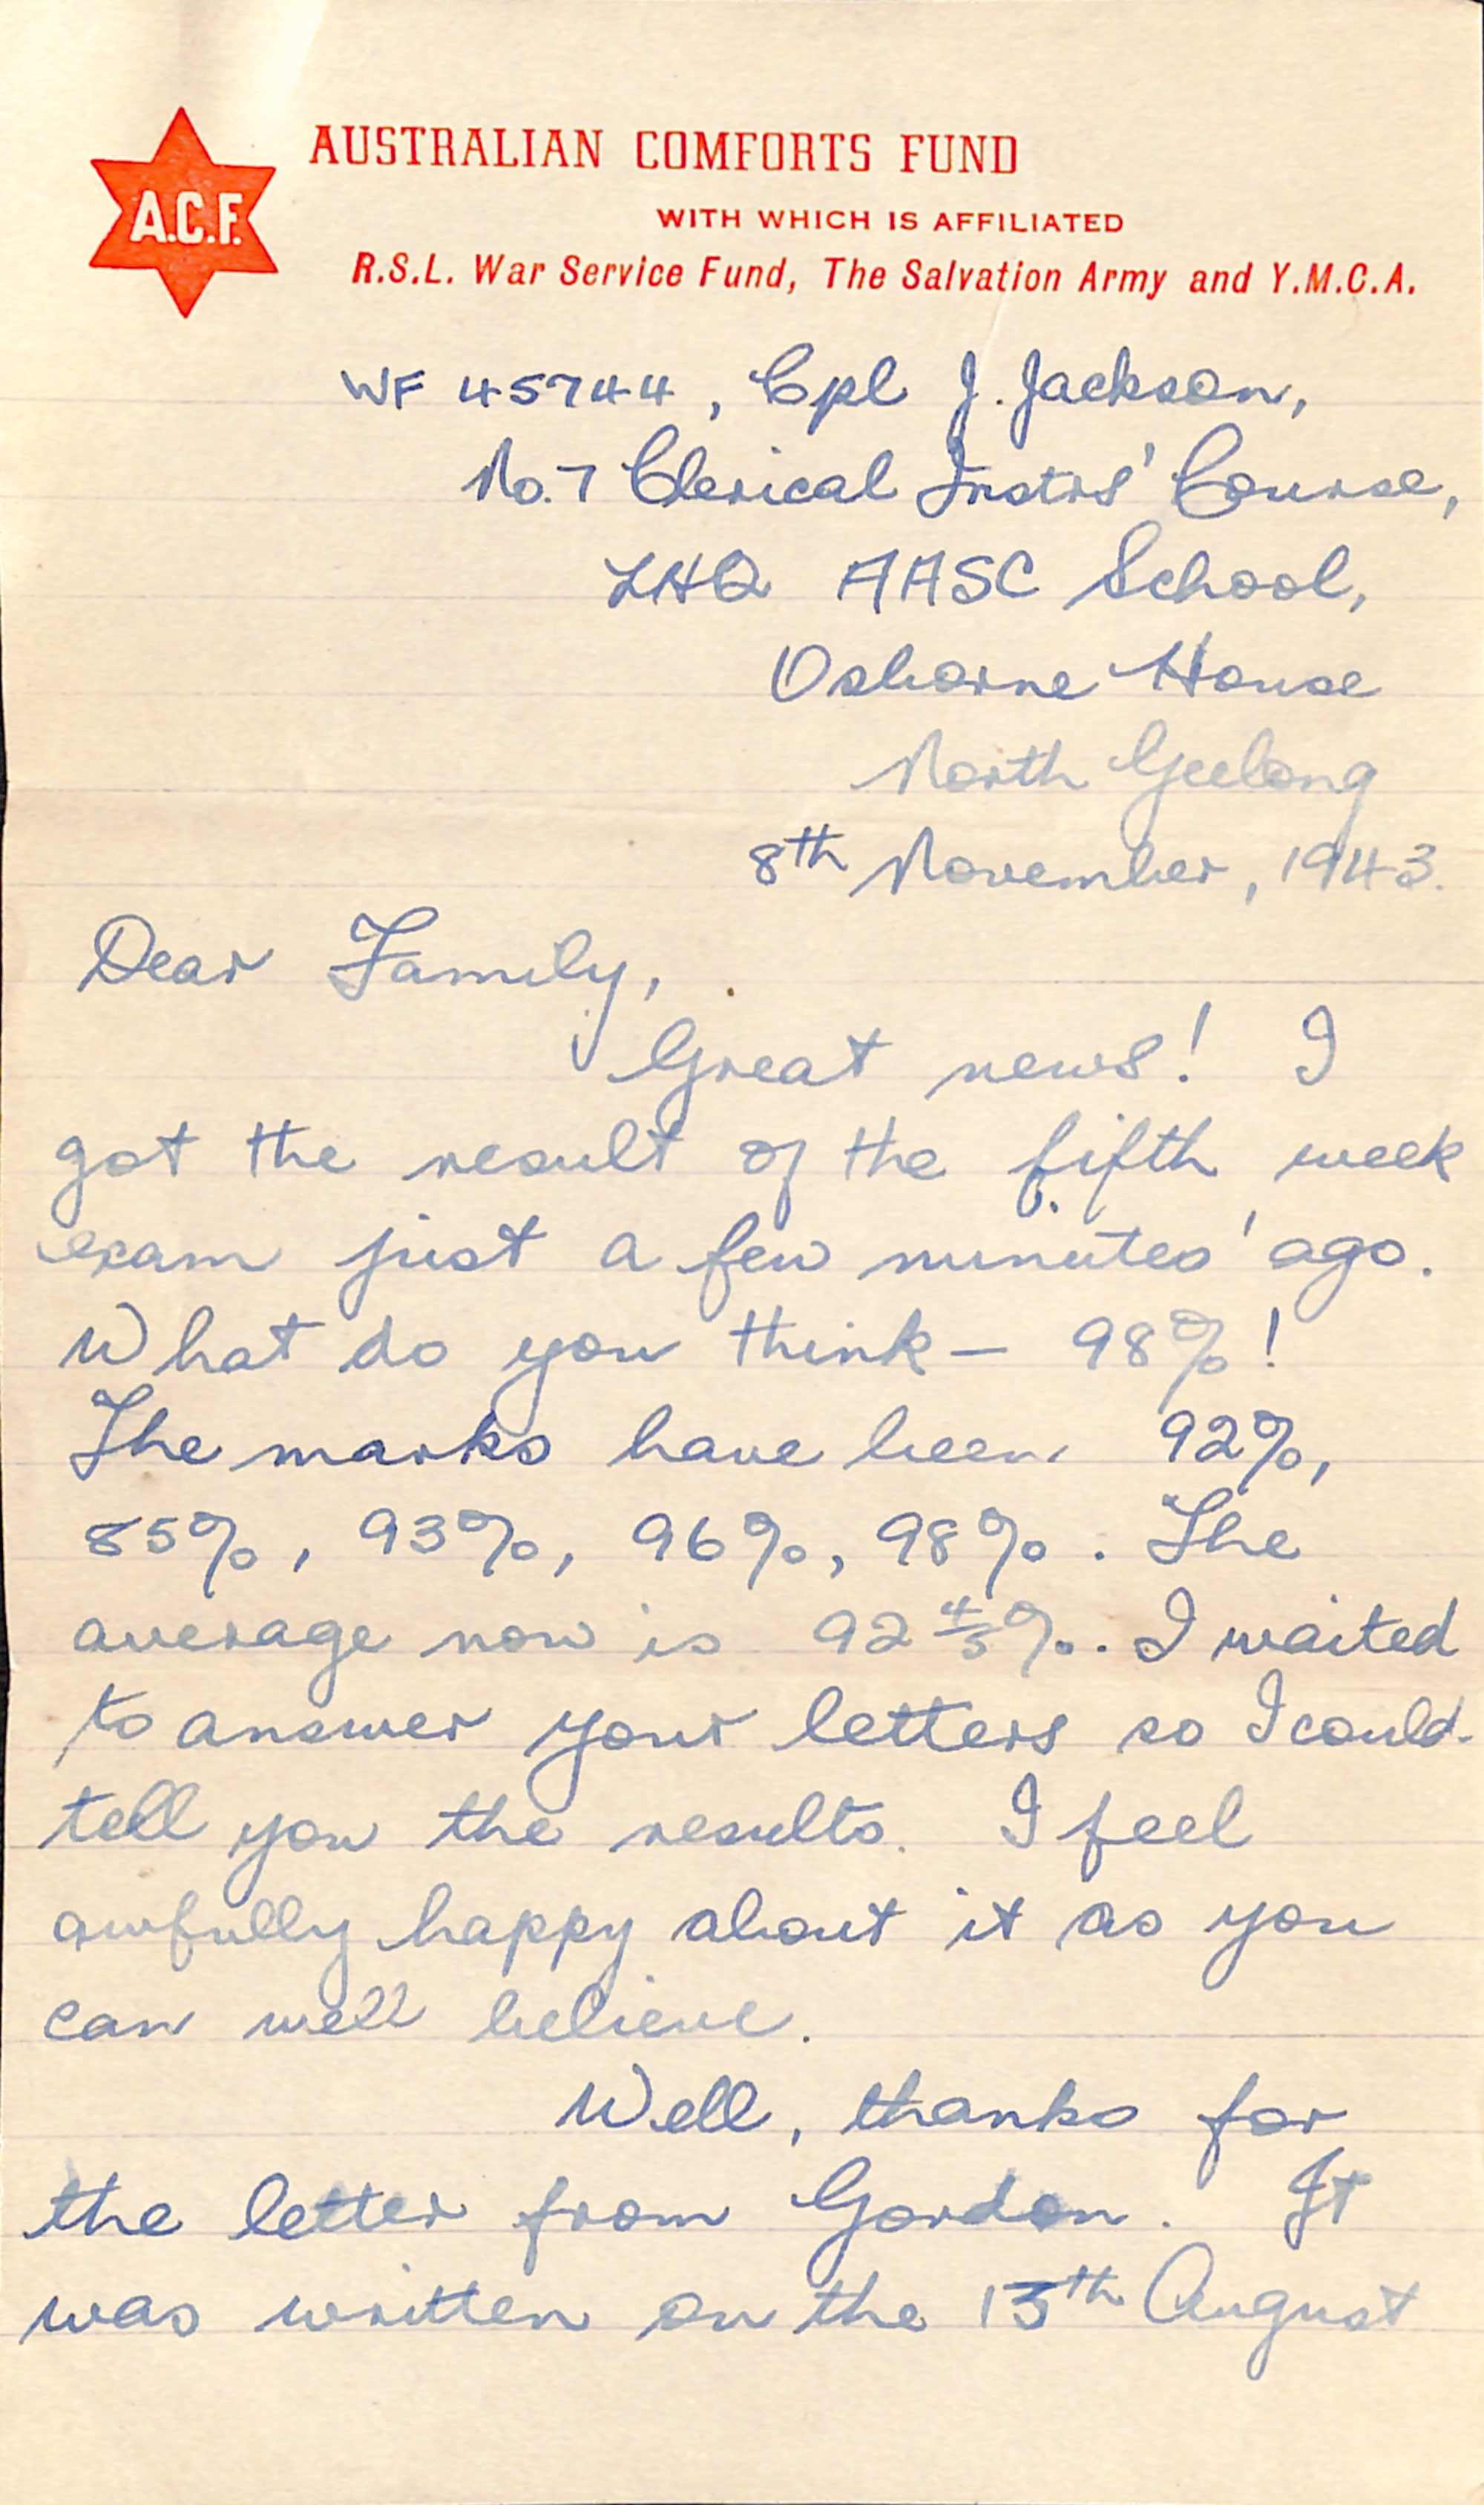 A.C.F.
AUSTRALIAN COMFORTS FUND
WITH WHICH IS AFFILIATED
R.S.L. War Service Fund, The Salvation Army and Y.M.C.A.
WF 45744, Cpl J. Jackson,
No. 7 Clerical Instrs' Course,
LHQ AASC School,
Osborne House
North Geelong
8th November, 1943.
Dear Family,
Great news! I
got the result of the fifth week
exam just a few minutes' ago.
What do you think – 98%!
The marks have been 92%,
85%, 93%, 96%, 98%. The
average now is 92 4/5%. I waited
to answer your letters so I could
tell you the results. I feel
awfully happy about it as you
can well believe.
Well, thanks for
the letter from Gordon. It
was written on the 13th August